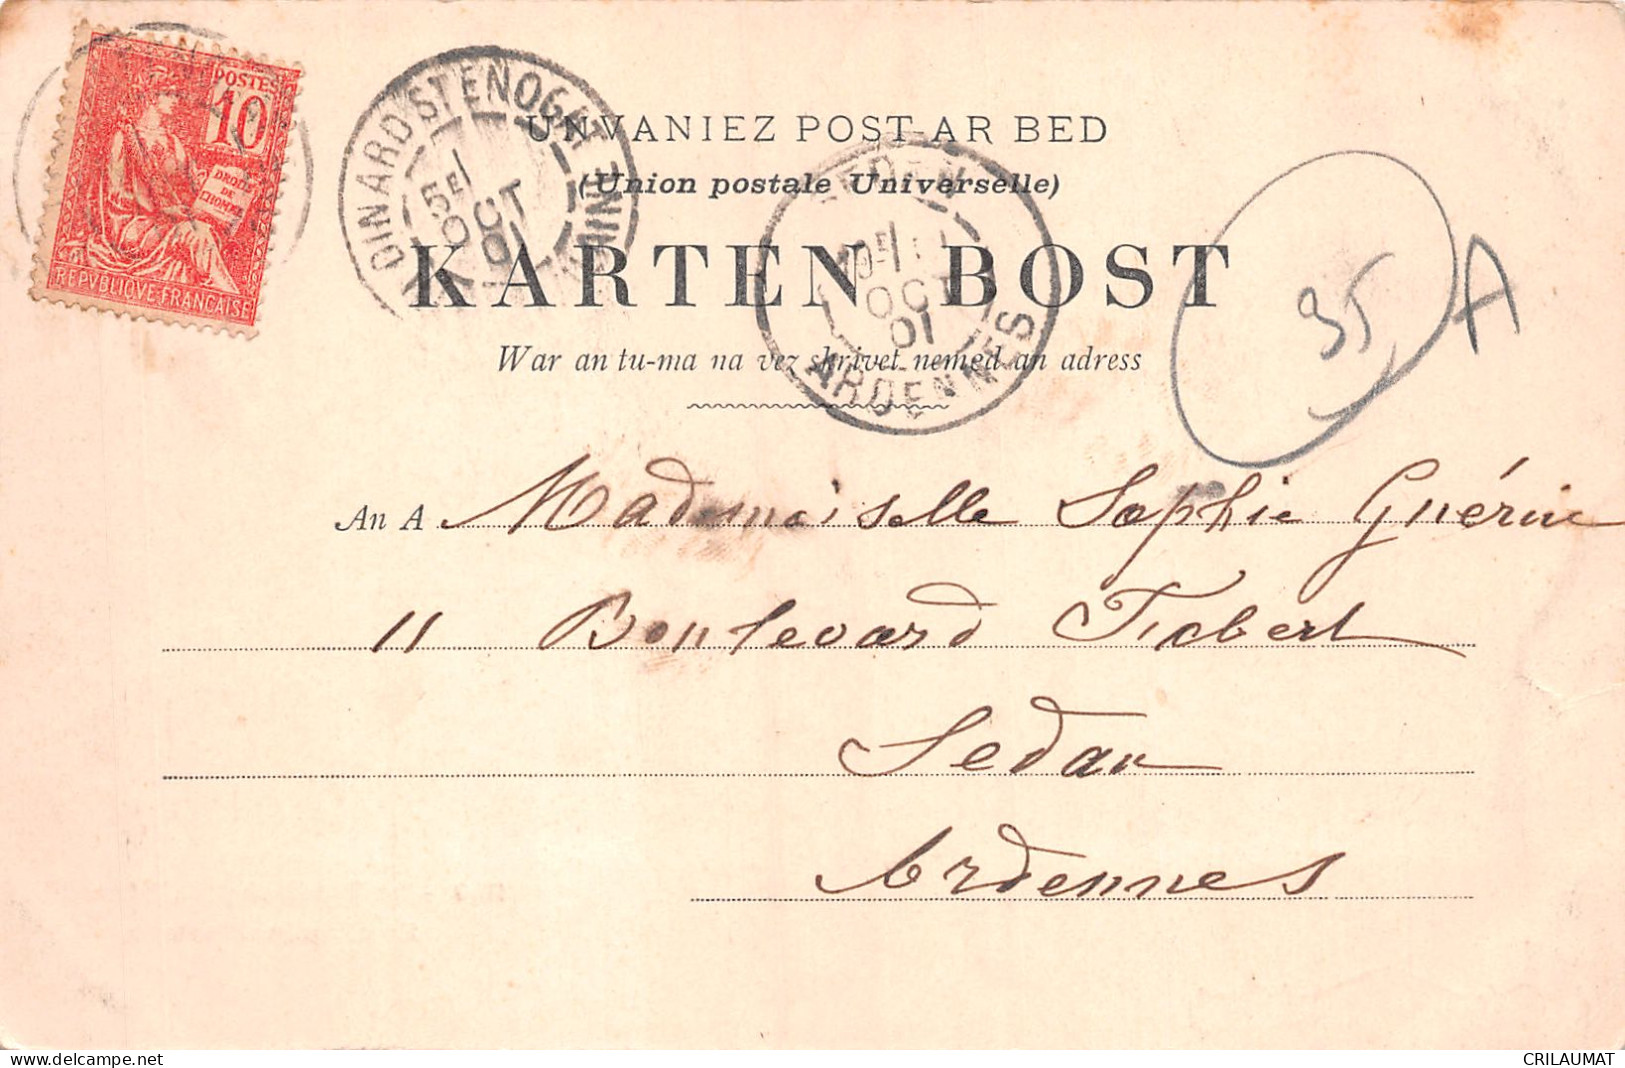 POSTES
10
DROITS
DE
L'HOMME
REPVBLIQVE FRANCAISE
DINARD ST ENOGAT
5E
OCT
01
UNVANIEZ POST-AR BED
(Union postale Universelle)
KARTEN BOST
War an tu-ma na vez skrivet nemed an adress
OCT
01
ARDENNES
95
A
An A Mademoiselle Sophie Guérin
11 Boulevard Fabert
Sedan
Ardennes
CRILAUMAT